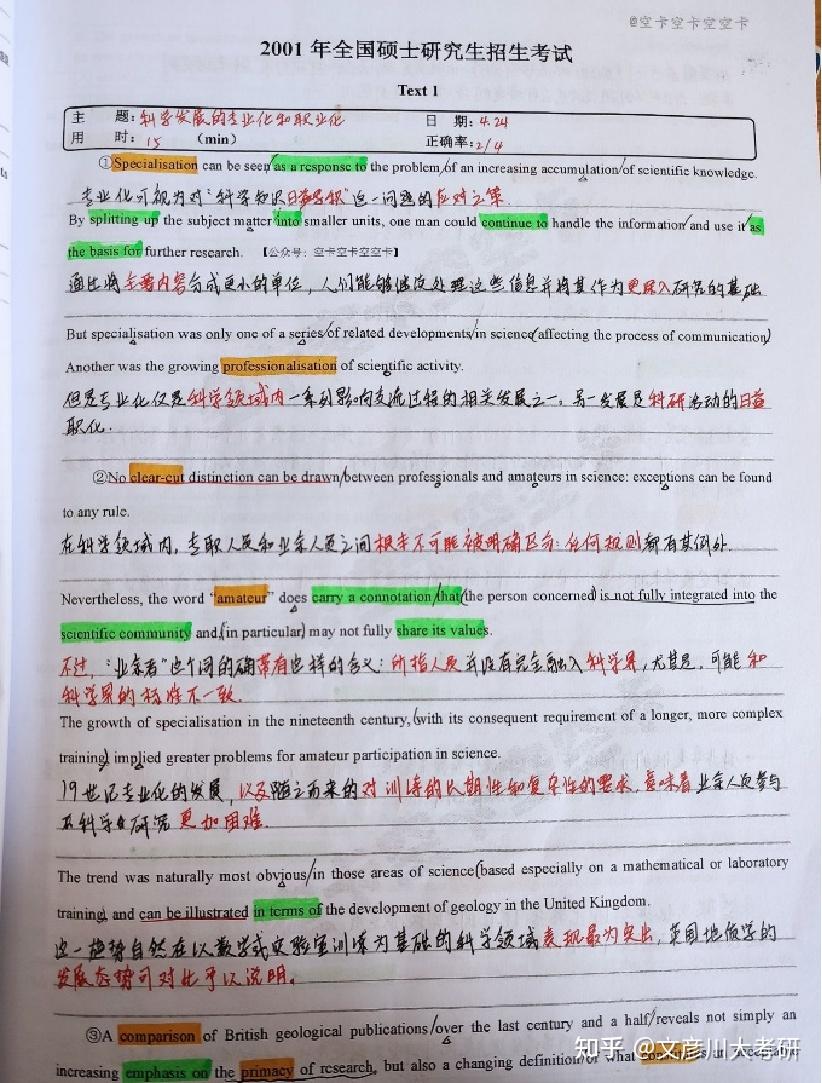 @空卡空卡空空卡
2001 年全国硕士研究生招生考试
Text 1
主 题: 科学发展的专业化和职业化 日 期: 4.24
用 时: 15 (min) 正确率: 2/4
①Specialisation can be seen as a response to the problem of an increasing accumulation of scientific knowledge.
专业化可视为对“科学知识日益累积”这一问题的应对之策.
By splitting up the subject matter into smaller units, one man could continue to handle the information and use it as
the basis for further research. 【公众号: 空卡空卡空空卡】
通过将主要内容分成更小的单位, 人们能够继续处理这些信息并将其作为更深入研究的基础
But specialisation was only one of a series of related developments in science (affecting the process of communication)
Another was the growing professionalisation of scientific activity.
但是专业化仅是科学领域内一系列影响交流过程的相关发展之一, 另一发展是科研活动的日益
职化.
②No clear-cut distinction can be drawn between professionals and amateurs in science: exceptions can be found
to any rule.
在科学领域内, 专职人员和业余人员之间根本不可能被明确区分: 任何规则都有其例外.
Nevertheless, the word “amateur” does carry a connotation that (the person concerned) is not fully integrated into the
scientific community and (in particular) may not fully share its values.
不过, “业余者”这个词的确带有这样的含义: 所指人员并没有完全融入科学界, 尤其是, 可能和
科学界的标准不一致.
The growth of specialisation in the nineteenth century, (with its consequent requirement of a longer, more complex
training) implied greater problems for amateur participation in science.
19世纪专业化的发展, 以及随之而来的对训练的长期性和复杂性的要求, 意味着业余人员参与
科学研究更加困难.
The trend was naturally most obvious in those areas of science (based especially on a mathematical or laboratory
training) and can be illustrated in terms of the development of geology in the United Kingdom.
这一趋势自然在以数学或实验室训练为基础的科学领域表现最为突出, 英国地质学的
发展态势可对此予以说明.
③A comparison of British geological publications over the last century and a half reveals not simply an
increasing emphasis on the primacy of research, but also a changing definition of what an acceptable
知乎 @文彦川大考研